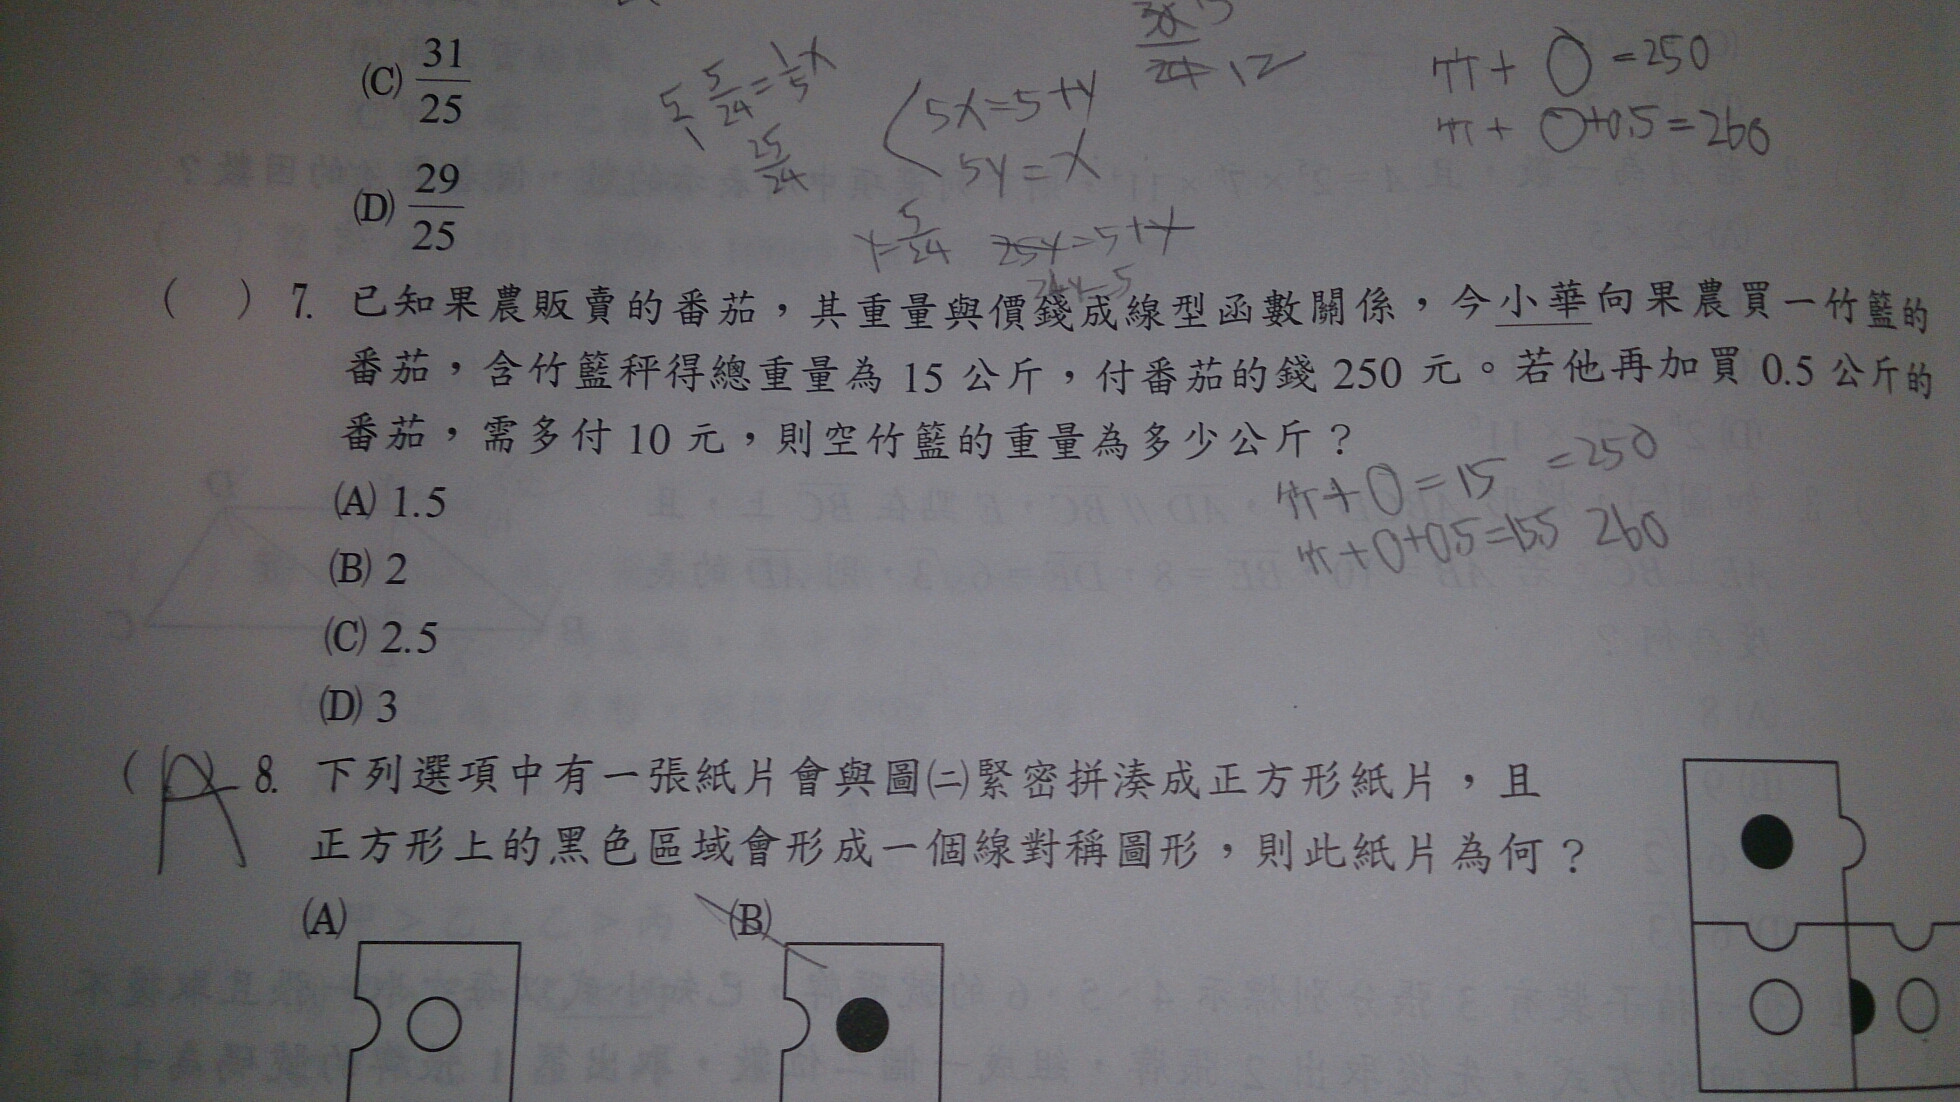 (C) 31/25
5/1 5/24 = 1/5 x
25/24
5x=5+y
5y=x
24 12
竹+O=250
竹+O+0.5=260
(D) 29/25
y=5/24
25y=5+y
24y=5
( ) 7. 已知果農販賣的番茄，其重量與價錢成線型函數關係，今小華向果農買一竹籃的
番茄，含竹籃秤得總重量為 15 公斤，付番茄的錢 250 元。若他再加買 0.5 公斤的
番茄，需多付 10 元，則空竹籃的重量為多少公斤？
竹+O=15 =250
竹+O+0.5=15.5 260
(A) 1.5
(B) 2
(C) 2.5
(D) 3
(A) 8. 下列選項中有一張紙片會與圖(二)緊密拼湊成正方形紙片，且
正方形上的黑色區域會形成一個線對稱圖形，則此紙片為何？
(A) (B)